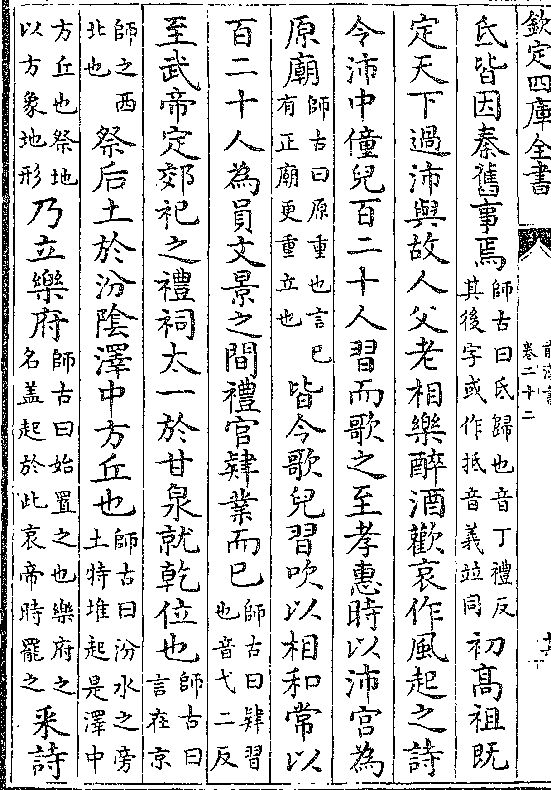 欽定四庫全書
前漢書
卷二十二
氐皆因秦舊事焉師古曰氐歸也音丁禮反其後字或作抵音義竝同初髙祖既
定天下過沛與故人父老相樂醉酒歡哀作風起之詩
令沛中僮兒百二十人習而歌之至孝惠時以沛宮為
原廟師古曰原重也言已有正廟更重立也皆令歌兒習吹以相和常以
百二十人為員文景之間禮官肄業而已師古曰肄習也音弋二反
至武帝定郊祀之禮祠太一於甘泉就乾位也師古曰言在京
師之西北也祭后土於汾陰澤中方丘也師古曰汾水之旁土特堆起是澤中
方丘也祭地以方象地形乃立樂府師古曰始置之也樂府之名盖起於此哀帝時罷之采詩